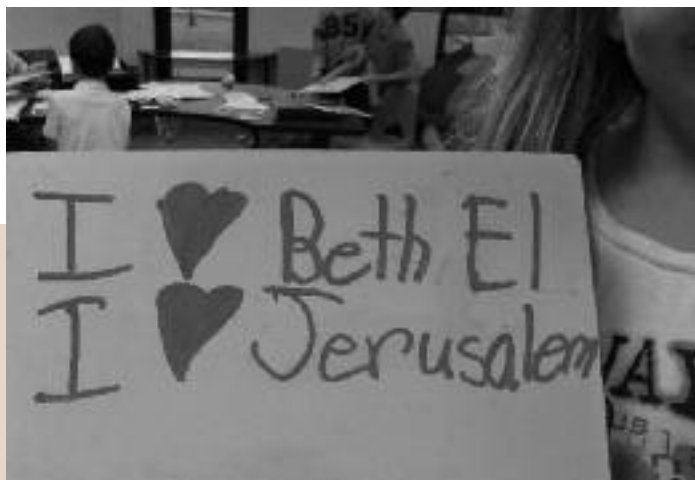 I ♥ Beth El
I ♥ Jerusalem